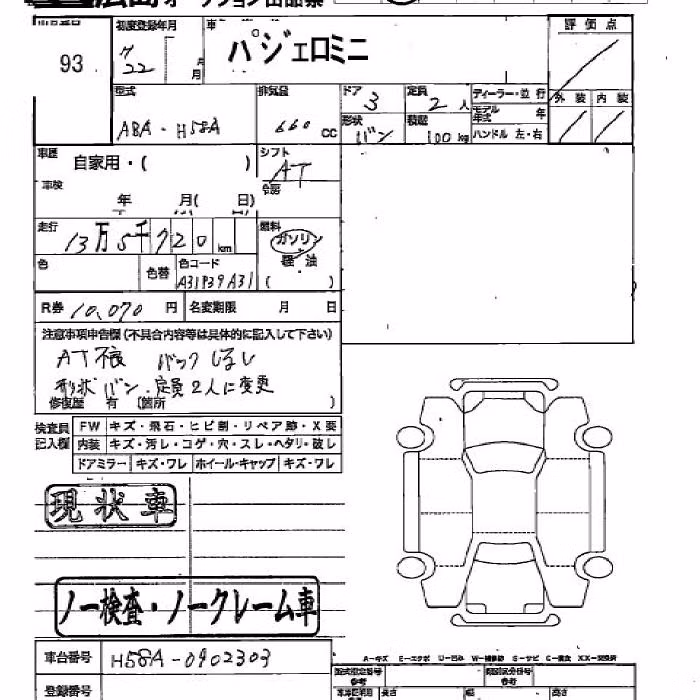 広島オークション出品票
93
初度登録年月
車
7/22
月
月
パジェロミニ
評価点
型式
ABA-H58A
排気量
660 cc
ドア 3
形状 バン
定員 2人
積載 100kg
ディーラー・並行
モデル年式 年
ハンドル 左・右
外装 内装
車歴 自家用・( )
シフト
AT
車検
年 月( 日)
冷房
走行
13万5千720km
燃料
ガソリン
軽油
( )
色
色替
色コード
A31P39A31
R券 10,070円
名変期限 月 日
注意事項申告欄(不具合内容等は具体的に記入して下さい)
AT不良 バックしない
形状バン.定員2人に変更
修復歴 有 〔箇所 )
検査員記入欄
FW キズ・飛石・ヒビ割・リペア跡・X要
内装 キズ・汚レ・コゲ・穴・スレ・ヘタリ・破レ
ドアミラー キズ・ワレ ホイール・キャップ キズ・ワレ
現状車
ノー検査・ノークレーム車
車台番号 H58A-0902303
A-キズ E-エクボ U-凹み W-補修跡 S-サビ C-腐食 X X-交換済
登録番号
型式指定番号
参考
類別区分番号
参考
長さ
幅
高さ